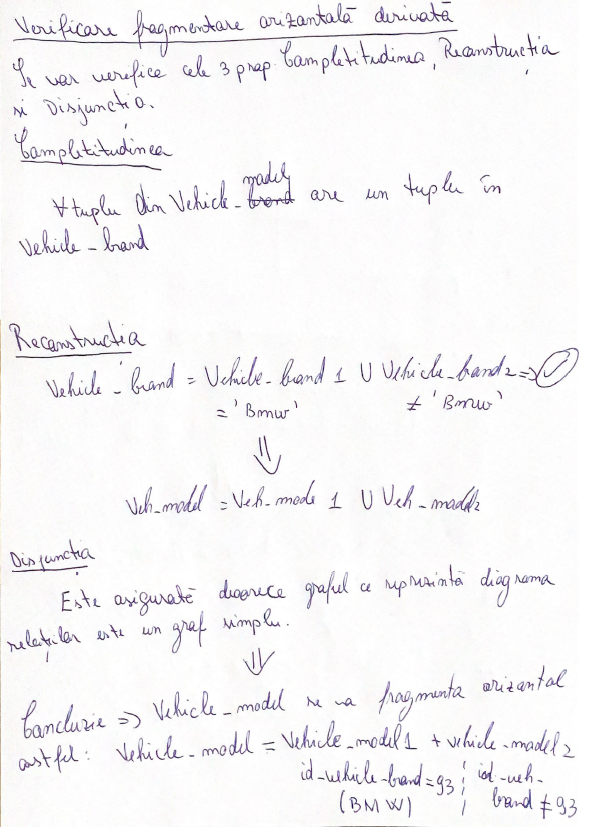 Verificare fragmentare orizontală derivată
Se vor verifica cele 3 prop. Completitudinea, Reconstructia
si Disjunctia.
Completitudinea
∀ tuplu din Vehicle_brand model are un tuplu în
Vehicle_brand
Reconstructia
Vehicle_brand = Vehicle_brand 1 U Vehicle_band2 => ✓
= 'Bmw' ≠ 'Bmw'
⇓
Veh_model = Veh_mode 1 U Veh_model2
Disjunctia
Este asigurată deoarece graful ce reprezintă diagrama
relațiilor este un graf simplu.
⇓
Concluzie => Vehicle_model se va fragmenta orizontal
astfel: Vehicle_model = Vehicle_model1 + vehicle_model2
id_vehicle_brand = 93 ¦ id_veh_
(BMW) ¦ brand ≠ 93